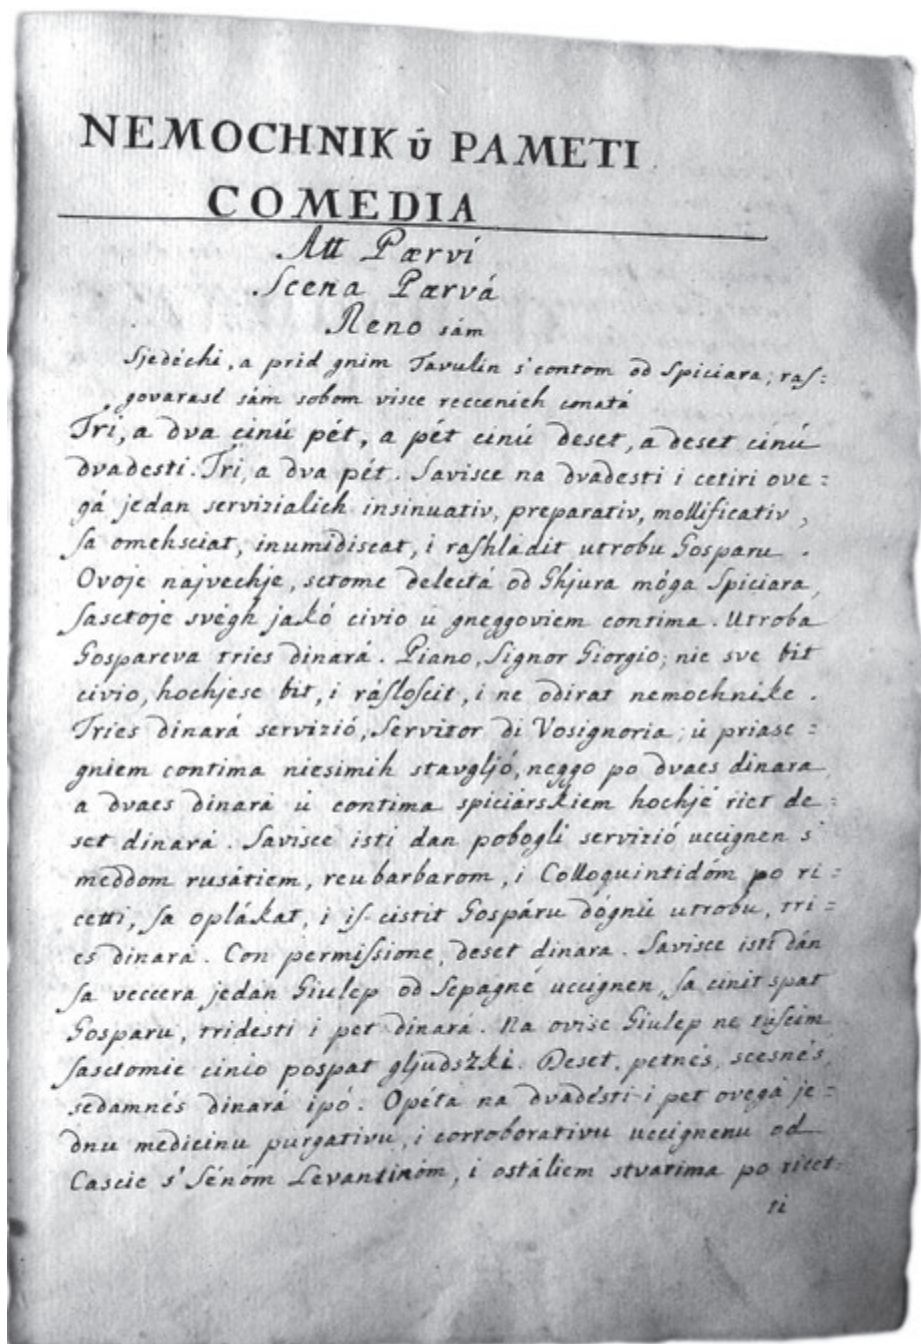 NEMOCHNIK ú PAMETI
COMEDIA
Att Pærvi
Scena Pærvá
Reno sám
Sjedéchi, a prid gnim Tavulin s'contom od Spiciara; raſ:
govarasé sám sobom visce reccenich conatá
Tri, a dva cinú pét, a pét cinú deset, a deset cinú
dvadesti. Tri, a dva pét. Savisce na dvadesti i cetiri ove:
gá jedan servizialich insinuativ, preparativ, mollificativ,
ſa omehsciat, inumidiscat, i raſhládit utrobu Gosparu.
Ovoje najvechje, sctome delectá od Ghjura móga Spiciara,
ſasctoje svégh jakó civio ú gneggoviem contima. Utroba
Gospareva tries dinará. Piano, Signor Giorgio; nie sve bit
civio, hochjese bit, i ráſloſcit, i ne odirat nemochnike.
Tries dinará servizió, Servitor di Vosignoria; ú priasc:
gniem contima niesimih stavgljó, neggo po dvaes dinara,
a dvaes dinará ú contima spiciárskiem hochjé riet de:
set dinará. Savisce isti dan pobogli servizió uccignen s'
meddom rusátiem, reubarbarom, i Colloquintidóm po ri:
cetti, ſa oplákat, i iſ-cistit Gospáru dógnú utrobu, tri:
es dinará. Con permiſsione, deset dinara. Savisce isti dán
ſa veccera jedan Giulep od Sepagné uccignen, ſa cinit spat
Gosparu, tridesti i pet dinará. Na ovisc Giulep ne tuſcim
ſasctomie cinio pospat gljudszki. Deset, petnés, scesnés,
sedamnés dinará ipó. Opéta na dvadésti i pet ovegá je:
dnu medicinu purgativu, i corroborativu uccignenu od
Cascie s' Sénóm Levantinóm, i ostáliem stvarima po ricet:
ti